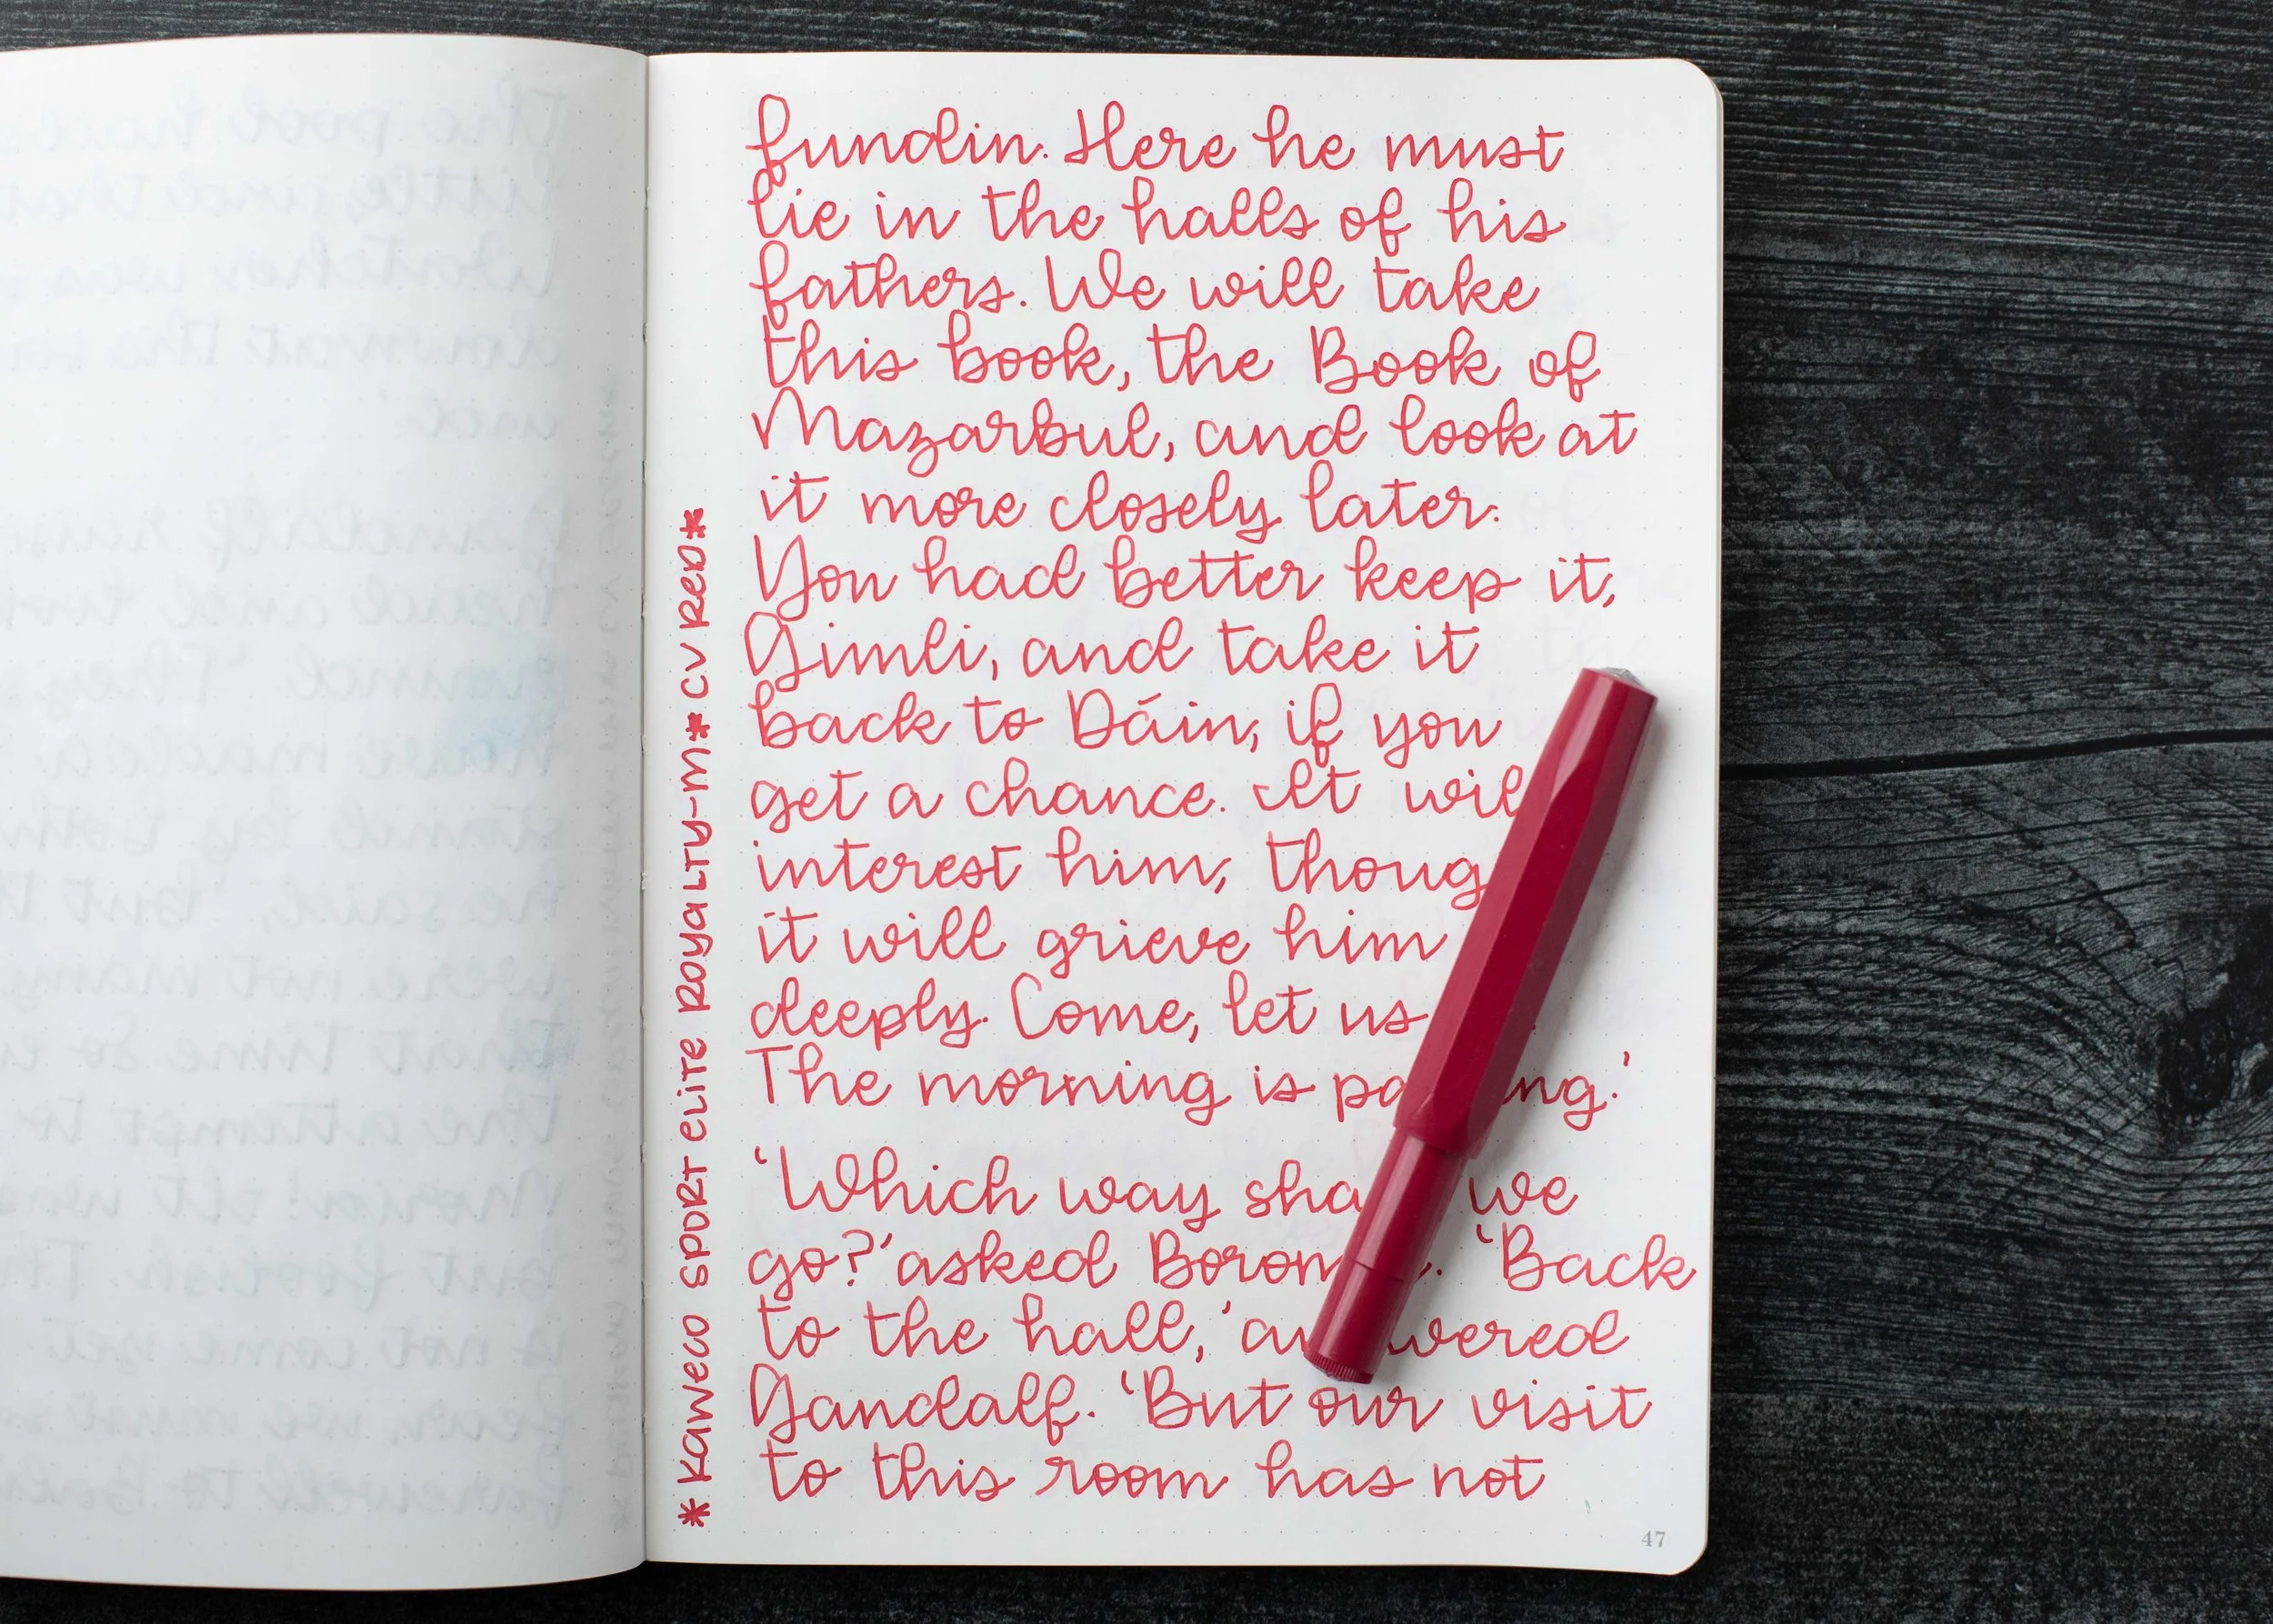 fundin. Here he must
lie in the halls of his
fathers. We will take
this book, the Book of
Mazarbul, and look at
it more closely later.
You had better keep it,
Gimli, and take it
back to Dáin, if you
get a chance. It wil
interest him, thoug
it will grieve him
deeply. Come, let us
The morning is pa ng.'
'Which way sha we
go?' asked Borom . 'Back
to the hall,' an wered
Gandalf. 'But our visit
to this room has not
* KAWECO SPORT ELITE ROYALTY-M * CV RED *
47